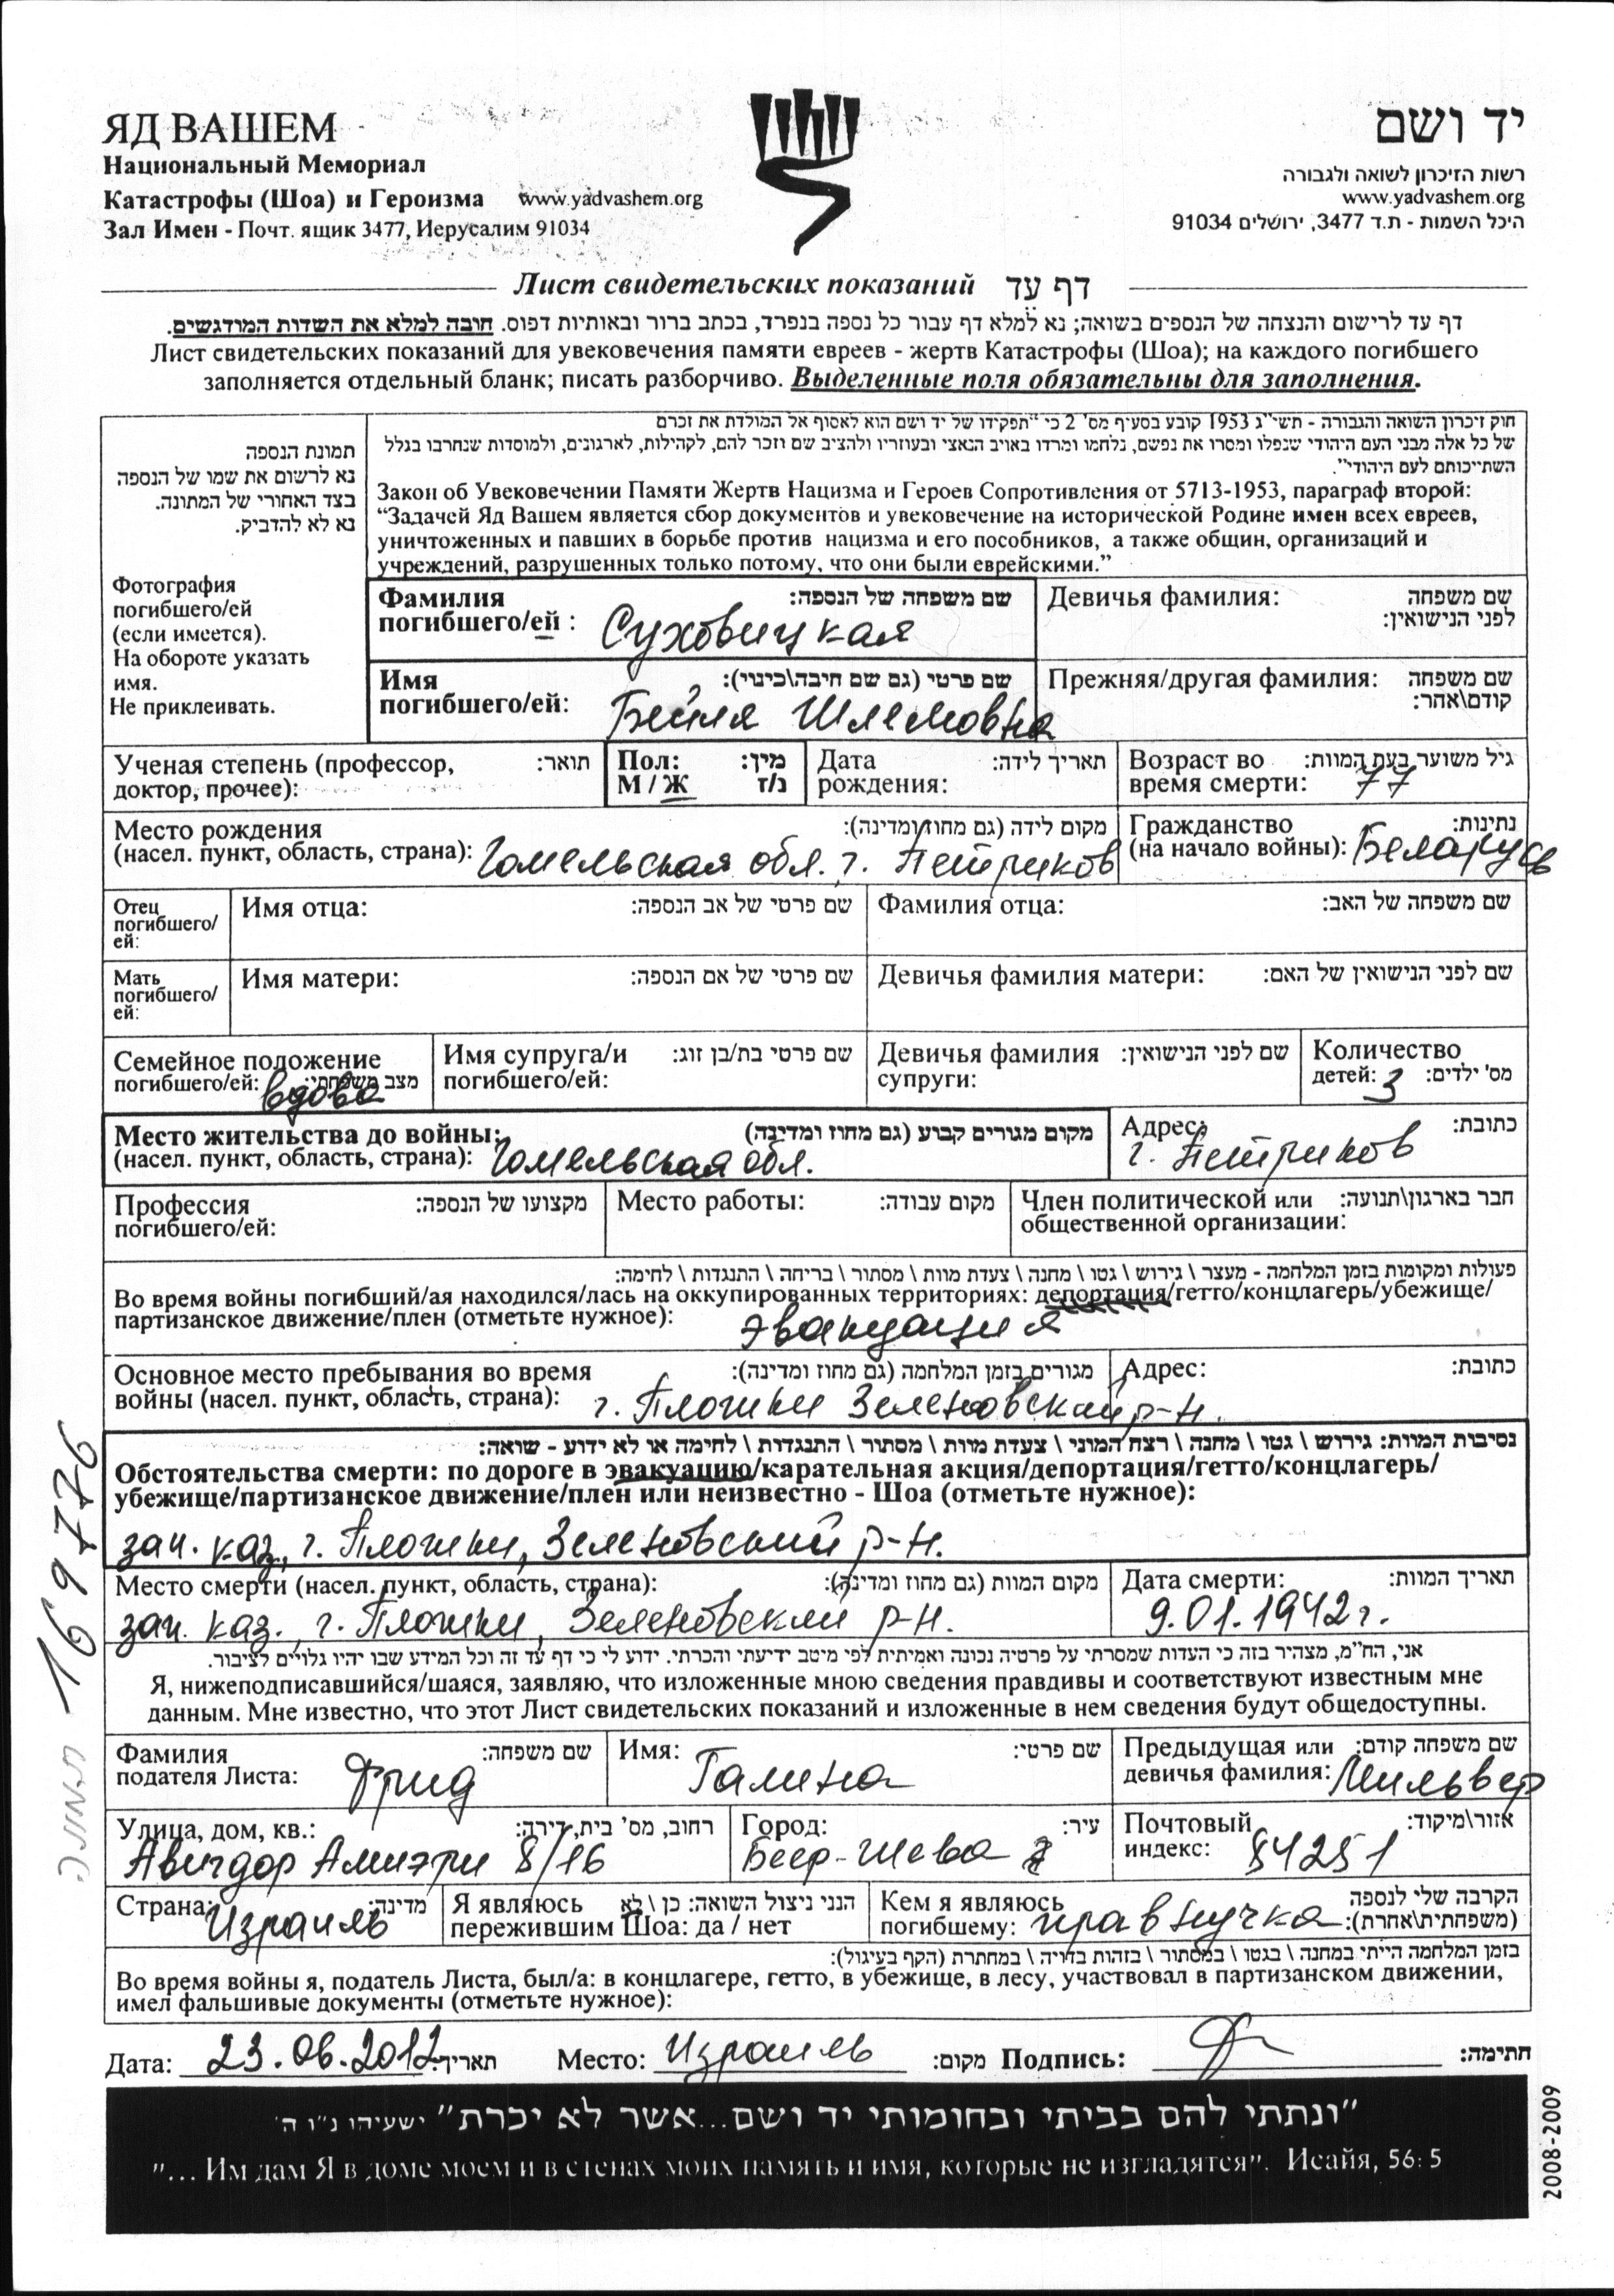 ЯД ВАШЕМ
Национальный Мемориал
Катастрофы (Шоа) и Героизма www.yadvashem.org
Зал Имен - Почт. ящик 3477, Иерусалим 91034
יד ושם
רשות הזיכרון לשואה ולגבורה
www.yadvashem.org
היכל השמות - ת.ד 3477, ירושלים 91034
Лист свидетельских показаний דף עד
דף עד לרישום והנצחה של הנספים בשואה; נא למלא דף עבור כל נספה בנפרד, בכתב ברור ובאותיות דפוס. חובה למלא את השדות המודגשים.
Лист свидетельских показаний для увековечения памяти евреев - жертв Катастрофы (Шоа); на каждого погибшего
заполняется отдельный бланк; писать разборчиво. Выделенные поля обязательны для заполнения.
תמונת הנספה
נא לרשום את שמו של הנספה
בצד האחורי של התמונה.
נא לא להדביק.
Фотография
погибшего/ей
(если имеется).
На обороте указать
имя.
Не приклеивать.
חוק זיכרון השואה והגבורה - תשי"ג 1953 קובע בסעיף מס' 2 כי "תפקידו של יד ושם הוא לאסוף אל המולדת את זכרם
של כל אלה מבני העם היהודי שנפלו ומסרו את נפשם, נלחמו ומרדו באויב הנאצי ובעוזריו ולהציב שם וזכר להם, לקהילות, לארגונים, ולמוסדות שנחרבו בגלל
השתייכותם לעם היהודי".
Закон об Увековечении Памяти Жертв Нацизма и Героев Сопротивления от 5713-1953, параграф второй:
“Задачей Яд Вашем является сбор документов и увековечение на исторической Родине имен всех евреев,
уничтоженных и павших в борьбе против нацизма и его пособников, а также общин, организаций и
учреждений, разрушенных только потому, что они были еврейскими.”
Фамилия שם משפחה של הנספה:
погибшего/ей : Суховицкая
Девичья фамилия: שם משפחה
לפני הנישואין:
Имя שם פרטי (גם שם חיבה\כינוי):
погибшего/ей: Бейля Шлемовна
Прежняя/другая фамилия: שם משפחה
קודם\אחר:
Ученая степень (профессор, תואר:
доктор, прочее):
Пол: מין:
М / Ж ז/נ
Дата תאריך לידה:
рождения:
Возраст во גיל משוער בעת המוות:
время смерти: 77
Место рождения מקום לידה (גם מחוז ומדינה):
(насел. пункт, область, страна): Гомельская обл. г. Петриков
Гражданство נתינות:
(на начало войны): Беларусь
Отец
погибшего/
ей:
Имя отца: שם פרטי של אב הנספה:
Фамилия отца: שם משפחה של האב:
Мать
погибшего/
ей:
Имя матери: שם פרטי של אם הנספה:
Девичья фамилия матери: שם לפני הנישואין של האם:
Семейное положение
погибшего/ей: вдова מצב משפחתי:
Имя супруга/и שם פרטי בת/בן זוג:
погибшего/ей:
Девичья фамилия שם לפני הנישואין:
супруги:
Количество
детей: 3 מס' ילדים:
Место жительства до войны: מקום מגורים קבוע (גם מחוז ומדינה)
(насел. пункт, область, страна): Гомельская обл.
Адрес: כתובת:
г. Петриков
Профессия מקצועו של הנספה:
погибшего/ей:
Место работы: מקום עבודה:
Член политической или חבר בארגון\תנועה:
общественной организации:
פעולות ומקומות בזמן המלחמה - מעצר \ גירוש \ גטו \ מחנה \ צעדת מוות \ מסתור \ בריחה \ התנגדות \ לחימה:
Во время войны погибший/ая находился/лась на оккупированных территориях: депортация/гетто/концлагерь/убежище/
партизанское движение/плен (отметьте нужное): эвакуация
Основное место пребывания во время מגורים בזמן המלחמה (גם מחוז ומדינה):
войны (насел. пункт, область, страна): г. Плошки Зеленовский р-н.
Адрес: כתובת:
נסיבות המוות: גירוש \ גטו \ מחנה \ רצח המוני \ צעדת מוות \ מסתור \ התנגדות \ לחימה או לא ידוע - שואה:
Обстоятельства смерти: по дороге в эвакуацию/карательная акция/депортация/гетто/концлагерь/
убежище/партизанское движение/плен или неизвестно - Шоа (отметьте нужное):
зап. каз., г. Плошки, Зеленовский р-н.
Место смерти (насел. пункт, область, страна): מקום המוות (גם מחוז ומדינה):
зап. каз., г. Плошки, Зеленовский р-н.
Дата смерти: תאריך המוות:
9.01.1942 г.
אני, הח"מ, מצהיר בזה כי העדות שמסרתי על פרטיה נכונה ואמיתית לפי מיטב ידיעתי והכרתי. ידוע לי כי דף עד זה וכל המידע שבו יהיו גלויים לציבור.
Я, нижеподписавшийся/шаяся, заявляю, что изложенные мною сведения правдивы и соответствуют известным мне
данным. Мне известно, что этот Лист свидетельских показаний и изложенные в нем сведения будут общедоступны.
Фамилия שם משפחה:
подателя Листа: Фрид
Имя: שם פרטי:
Галина
Предыдущая или שם משפחה קודם:
девичья фамилия: Мильвер
Улица, дом, кв.: רחוב, מס' בית, דירה:
Авигдор Амиэри 8/16
Город: עיר:
Беер-Шева
Почтовый אזור\מיקוד:
индекс: 84251
Страна: מדינה:
Израиль
Я являюсь הנני ניצול השואה: כן \ לא
пережившим Шоа: да / нет
Кем я являюсь הקרבה שלי לנספה
погибшему: правнучка (משפחתית\אחרת):
בזמן המלחמה הייתי במחנה \ בגטו \ במסתור \ בזהות בדויה \ במחתרת (הקף בעיגול):
Во время войны я, податель Листа, был/а: в концлагере, гетто, в убежище, в лесу, участвовал в партизанском движении,
имел фальшивые документы (отметьте нужное):
Дата: 23.06.2012 תאריך: Место: Израиль מקום: Подпись: חתימה:
"ונתתי להם בביתי ובחומותי יד ושם...אשר לא יכרת" ישעיהו נ"ו ה'
"... Им дам Я в доме моем и в стенах моих память и имя, которые не изгладятся". Исайя, 56: 5
2008-2009
169776